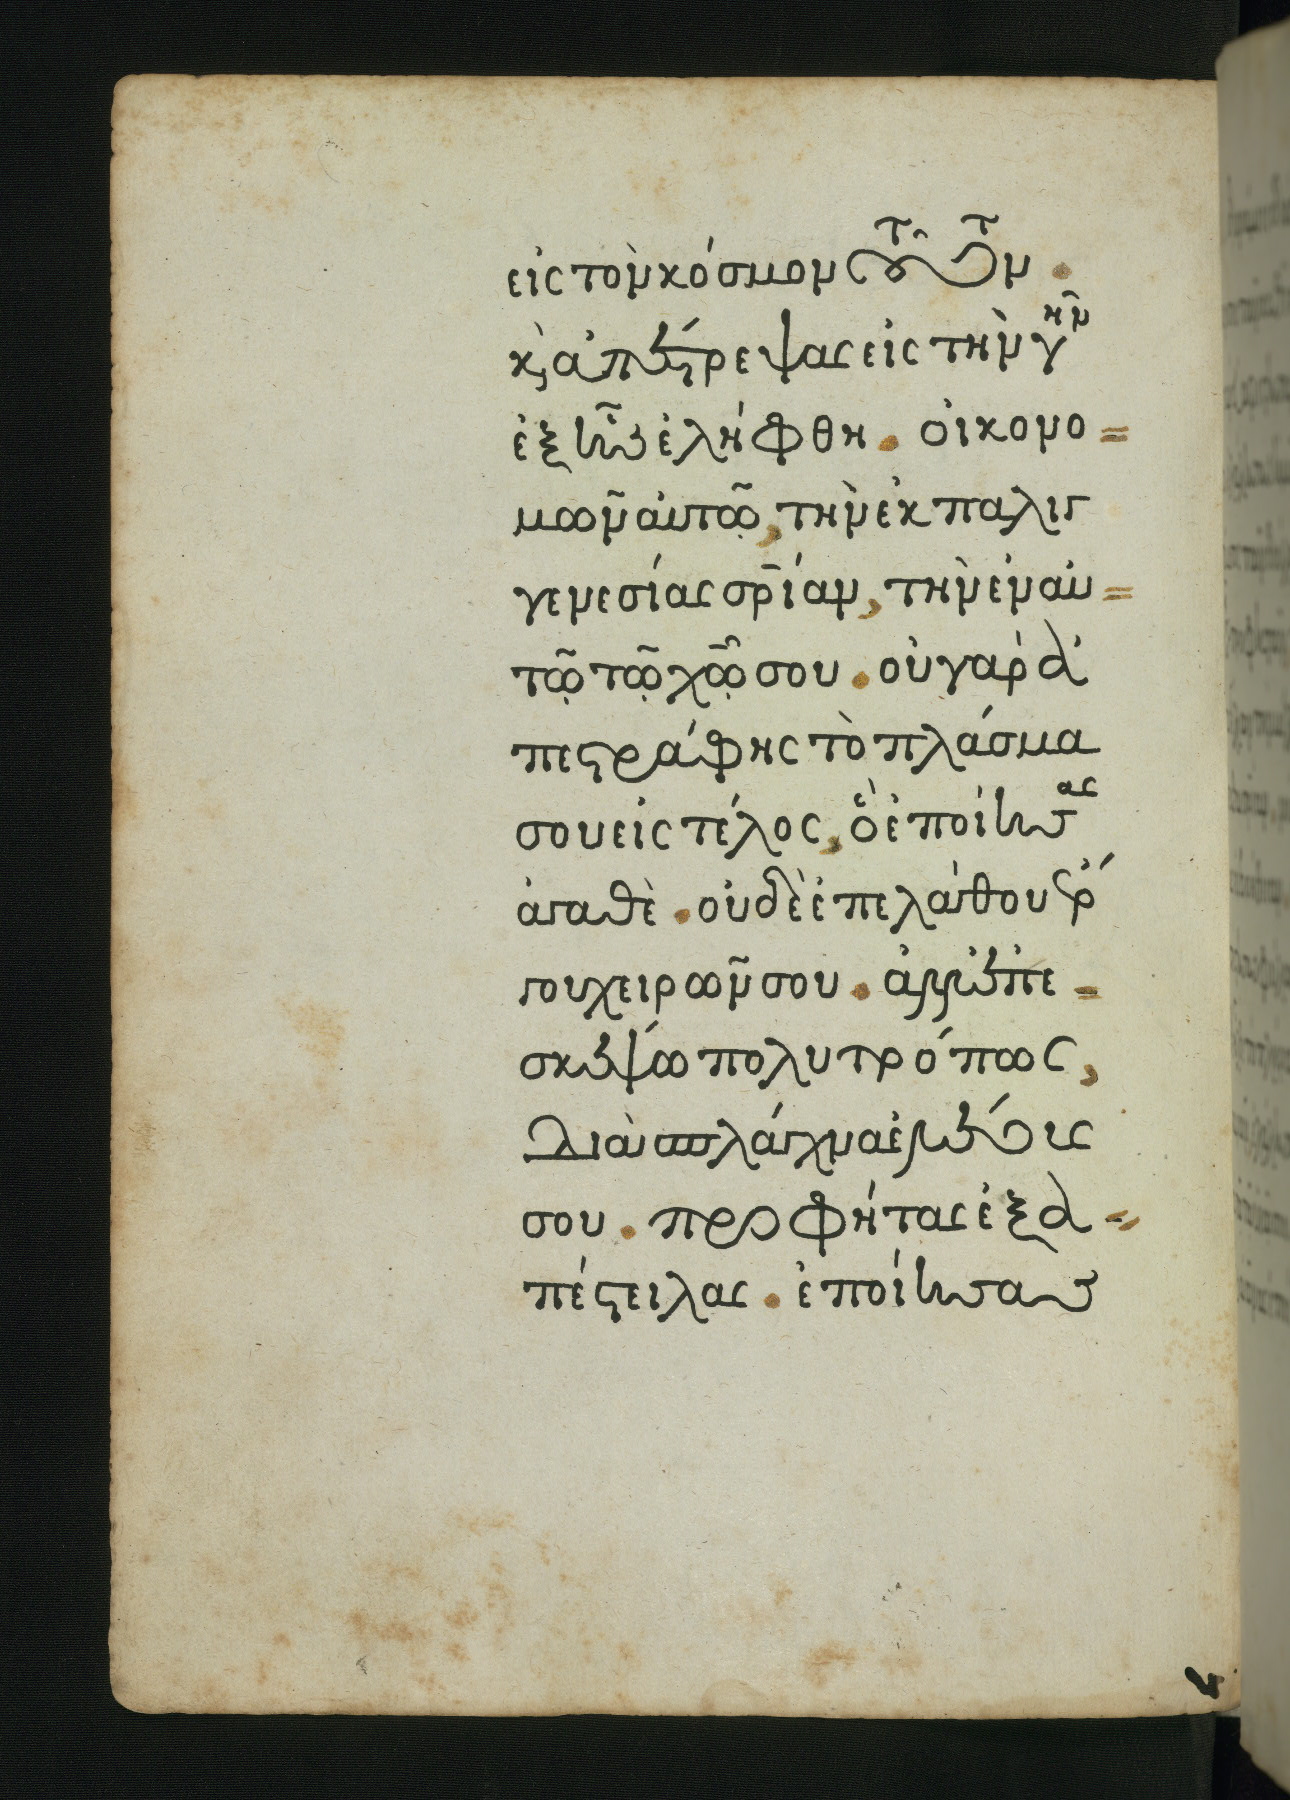 εἰς τὸν κόσμον τοῦτον.
κ(αὶ) ἀπέστρεψας εἰς τὴν γῆν
ἐξ ἧς ἐλήφθη. οἰκονο=
μῶν αὐτῶ, τὴν ἐκ παλιγ
γενεσίας σρίαν, τὴν ἐν αὐ=
τῶ τῶ χῶ σου. οὐ γαρ ἀ
πεστράφης τὸ πλάσμα
σου εἰς τέλος, ὃ ἐποίησας
ἀγαθὲ. οὐδὲ ἐπελάθου ἔρ
γου χειρῶν σου. ἀλλ' ἐπε=
σκέψω πολυτρόπως,
διὰ σπλάγχνα ἐλέους
σου. προφήτας ἐξα=
πέστειλας. ἐποίησας